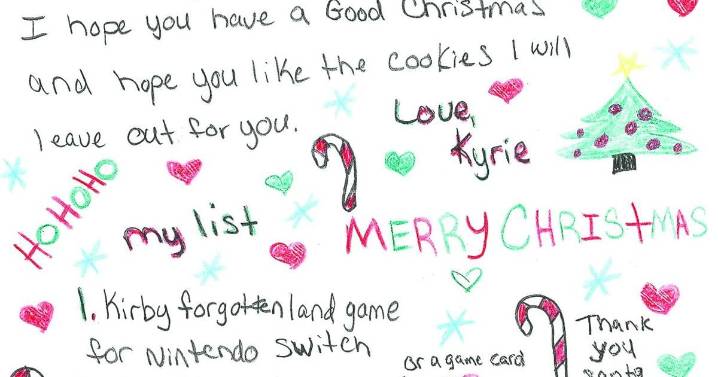 I hope you have a Good Christmas
and hope you like the cookies I will
leave out for you.
Love,
Kyrie
HoHoHo
my list
MERRY CHRISTMAS
1. Kirby forgotten land game
for Nintendo Switch
or a game card
Thank
you
santa